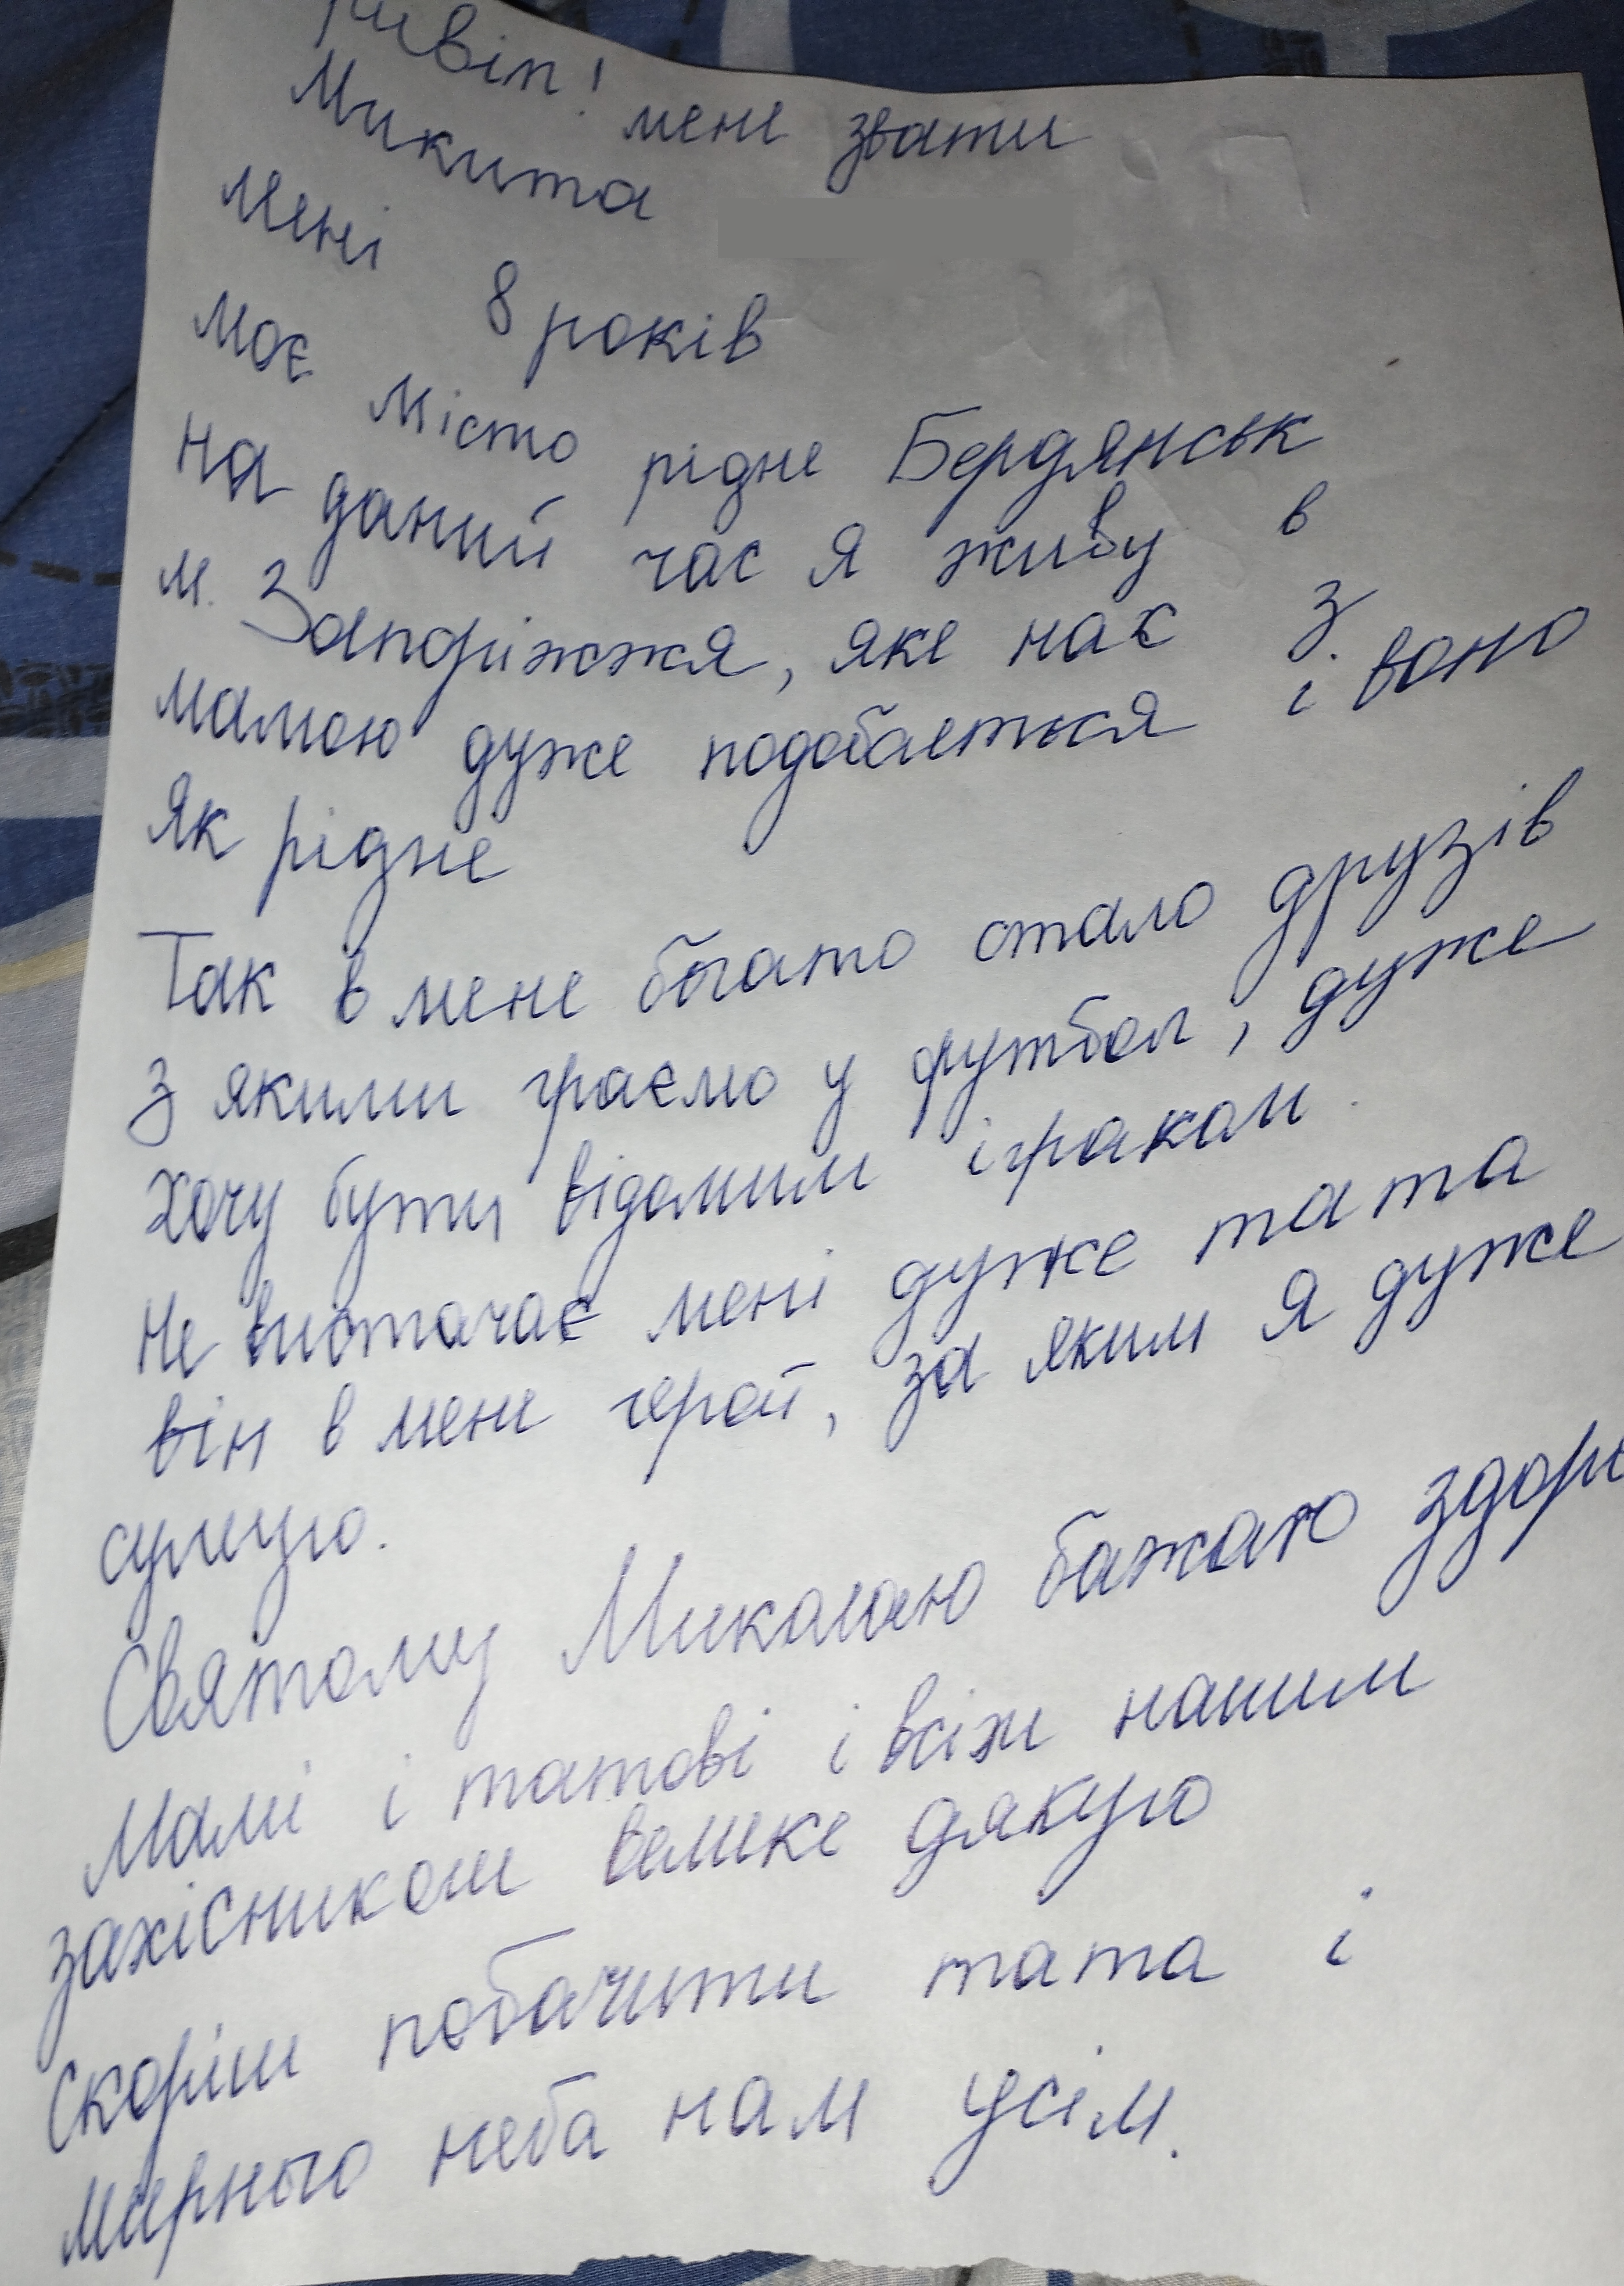 ривіт! мене звати
Микита
Мені 8 років
Моє місто рідне Бердянськ
На даний час я живу в
м. Запоріжжя, яке нас з
мамою дуже подобається і воно
як рідне
Так в мене багато стало друзів
з якими граємо у футбол, дуже
хочу бути відомим ігроком.
Не вистачає мені дуже тата
він в мене герой, за яким я дуже
сумую.
Святому Миколаю бажаю здоров
Мамі і татові і всім нашим
захісником велике дякую
Скоріш побачити тата і
мирного неба нам усім.